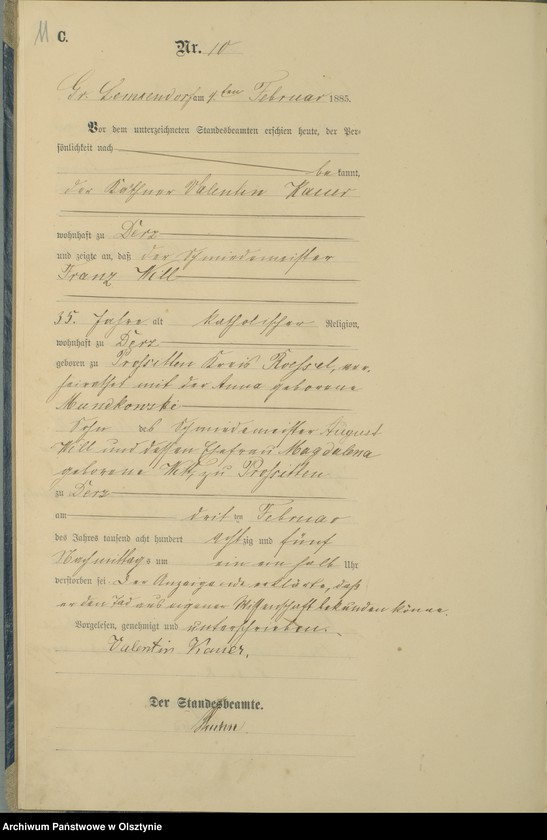 11 C.
Nr. 10
Gr. Lemkendorf am 9ten Februar 1885.
Vor dem unterzeichneten Standesbeamten erschien heute, der Per-
sönlichkeit nach
be kannt,
der Käthner Valentin Kauer
wohnhaft zu Derz
und zeigte an, daß der Schmiedemeister
Franz Will
35. Jahre alt katholischer Religion,
wohnhaft zu Derz
geboren zu Prossitten Kreis Roessel, ver-
heirathet mit der Anna geborene
Mundkowski
Sohn des Schmiedemeister August
Will und dessen Ehefrau Magdalena
geborene zu Prossitten
zu Derz
am drit ten Februar
des Jahres tausend acht hundert achtzig und fünf
Nachmittags um ein ein halb Uhr
verstorben sei. Der Anzeigende erklärte, daß
er den Tod aus eigener Wissenschaft bekunden könne.
Vorgelesen, genehmigt und unterschrieben.
Valentin Kauer.
Der Standesbeamte.
Archiwum Państwowe w Olsztynie